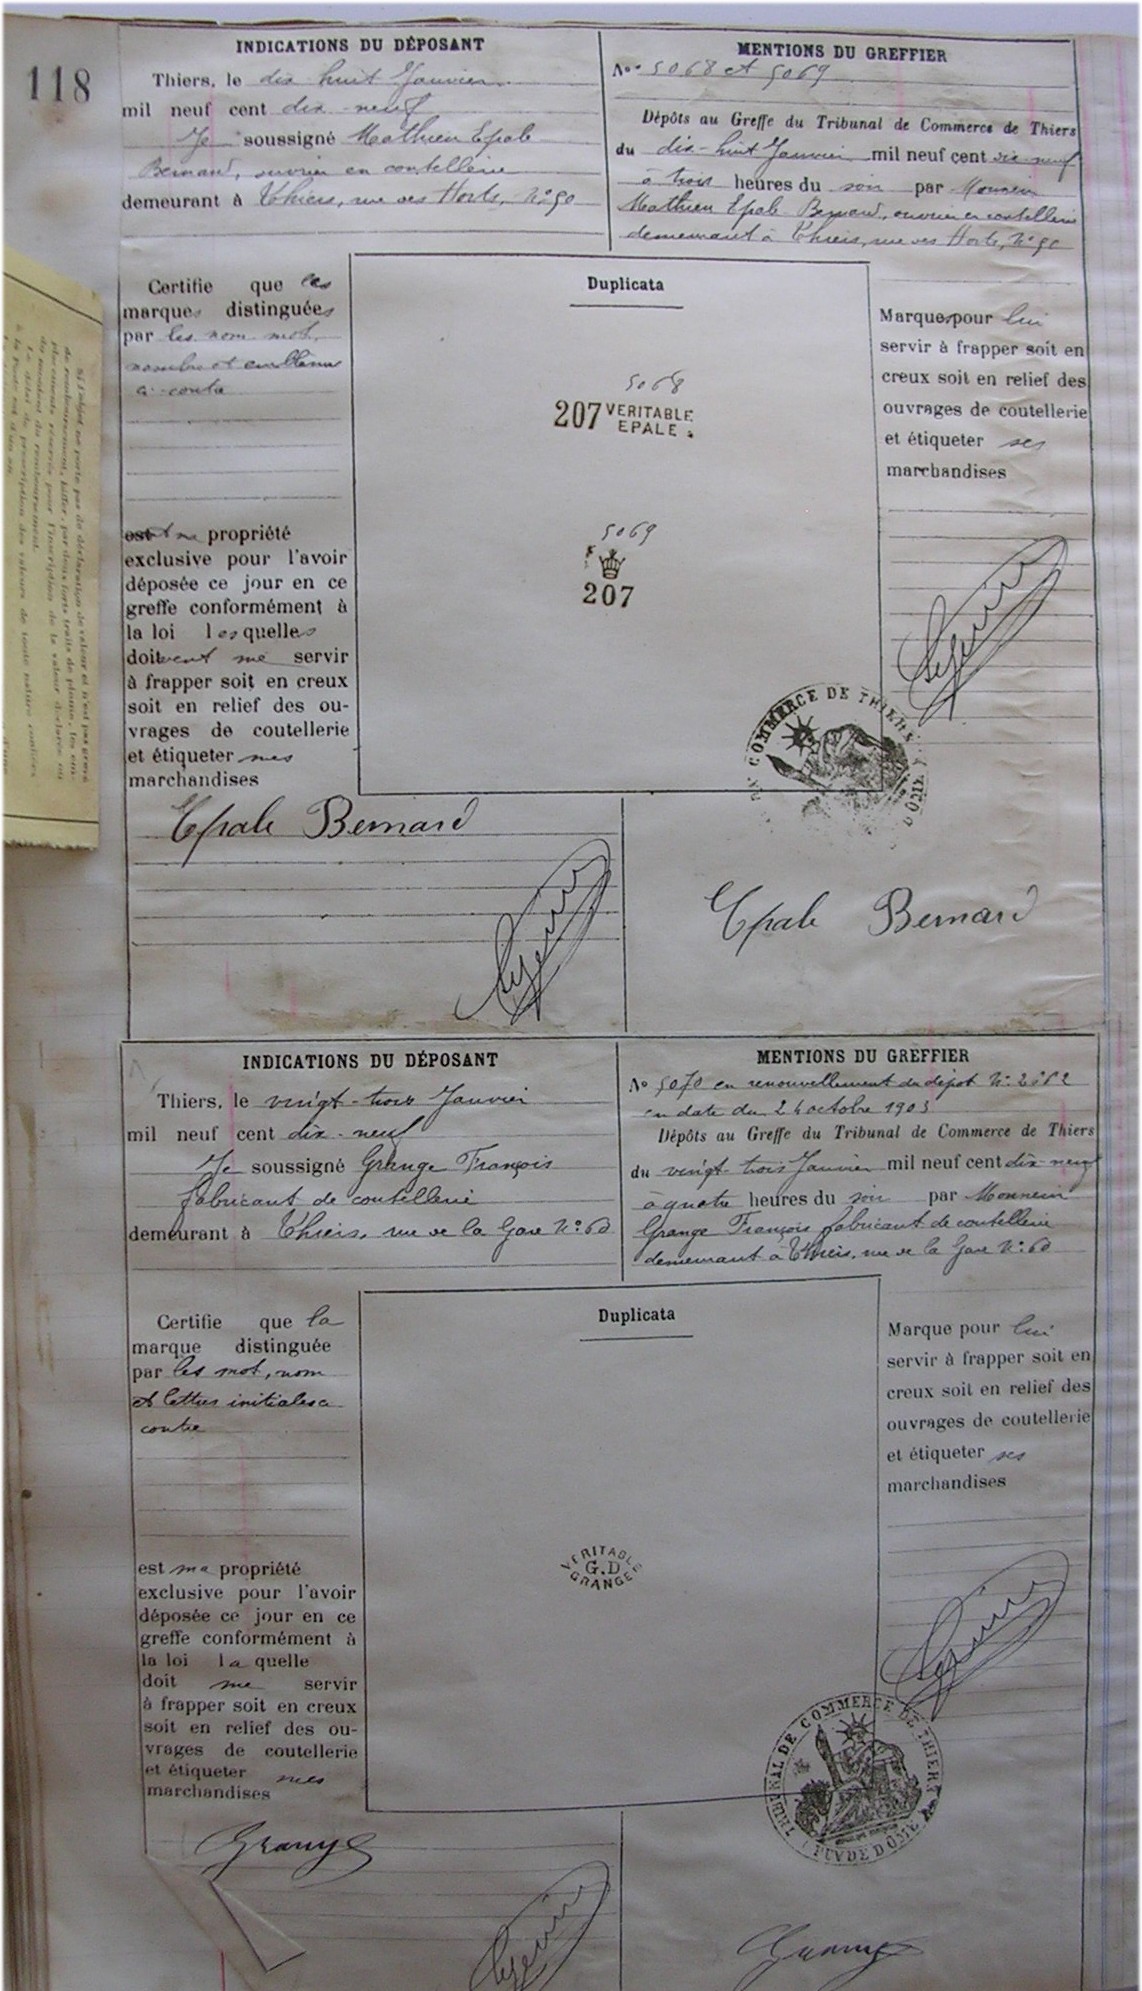 118
INDICATIONS DU DÉPOSANT
Thiers, le dix huit Janvier
mil neuf cent dix-neuf
Je soussigné Mathieu Epale
Bernard, ouvrier en coutellerie
demeurant à Thiers, rue des Horts, N° 50
MENTIONS DU GREFFIER
No 5068 et 5069
Dépôts au Greffe du Tribunal de Commerce de Thiers
du dix-huit Janvier mil neuf cent dix-neuf
à trois heures du soir par Monsieur
Mathieu Epale Bernard, ouvrier en coutellerie
demeurant à Thiers, rue des Horts, N° 50
Certifie que les
marques distinguées
par les nom mot,
nombre et emblème
ci-contre
est ma propriété
exclusive pour l'avoir
déposée ce jour en ce
greffe conformément à
la loi lesquelles
doivent me servir
à frapper soit en creux
soit en relief des ou-
vrages de coutellerie
et étiqueter mes
marchandises
Duplicata
5068
207 VERITABLE
EPALE
5069
207
Marques pour lui
servir à frapper soit en
creux soit en relief des
ouvrages de coutellerie
et étiqueter ses
marchandises
COMMERCE DE THIERS
Epale Bernard
Epale Bernard
INDICATIONS DU DÉPOSANT
Thiers, le vingt-trois Janvier
mil neuf cent dix-neuf
Je soussigné Grange François
fabricant de coutellerie
demeurant à Thiers, rue de la Gare N° 60
MENTIONS DU GREFFIER
No 5070 en renouvellement du dépôt N°
en date du 24 octobre 1903
Dépôts au Greffe du Tribunal de Commerce de Thiers
du vingt trois Janvier mil neuf cent dix-neuf
à quatre heures du soir par Monsieur
Grange François fabricant de coutellerie
demeurant à Thiers, rue de la Gare N° 60
Certifie que la
marque distinguée
par les mot, nom
et lettres initiales ci
contre
est ma propriété
exclusive pour l'avoir
déposée ce jour en ce
greffe conformément à
la loi laquelle
doit me servir
à frapper soit en creux
soit en relief des ou-
vrages de coutellerie
et étiqueter mes
marchandises
Duplicata
VERITABLE
G.D
GRANGE
Marque pour lui
servir à frapper soit en
creux soit en relief des
ouvrages de coutellerie
et étiqueter ses
marchandises
TRIBUNAL DE COMMERCE DE THIERS
PUY DE DOME
Grange
Grange